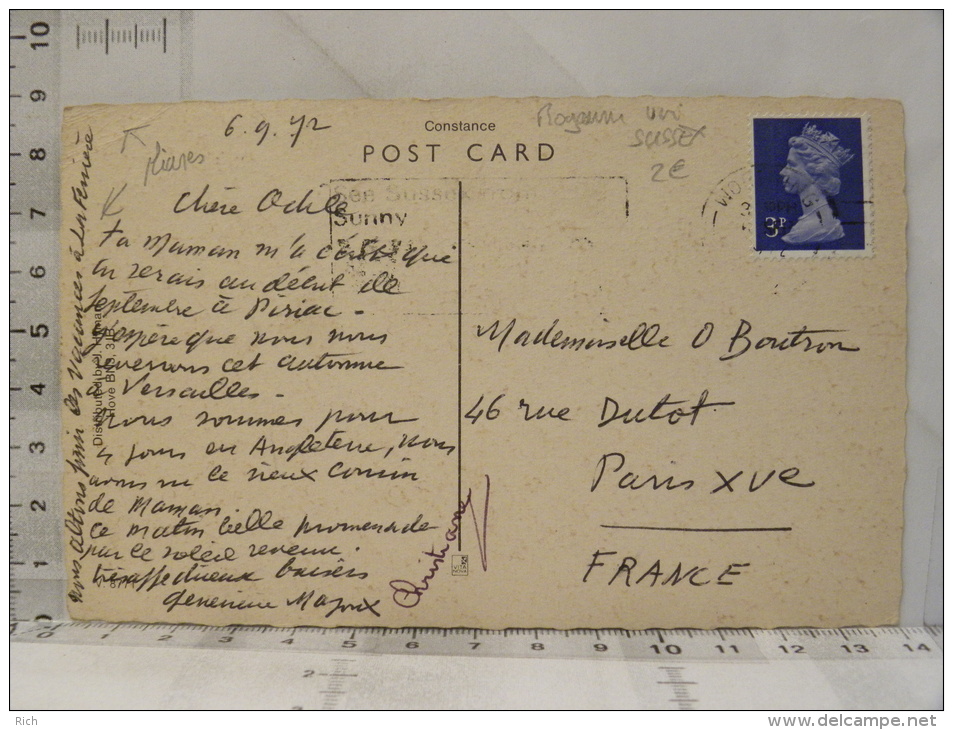 6.9.72
Constance
POST CARD
Royaume Uni
SUSSEX
2€
See Sussex from
Sunny
WOR
3P
Chère Odile
Ta Maman m'a que
tu serais au début de
Septembre à Piriac -
J'espère que nous nous
reverrons cet automne
à Versailles -
Nous sommes pour
4 jours en Angleterre, nous
avons vu le vieux cousin
de Maman.
Ce matin belle promenade
par le soleil revenu.
très affectueux baisers
Geneviève
Christiane
nous allons finir les vacances à la
Distributed by
Hove BN3
VITA NOVA
Mademoiselle O Boutron
46 rue Dutot
Paris XVe
FRANCE
10
9
8
7
6
5
4
3
2
1
0
0 1 2 3 4 5 6 7 8 9 10 11 12 13 14
2
Rich
www.delcampe.net